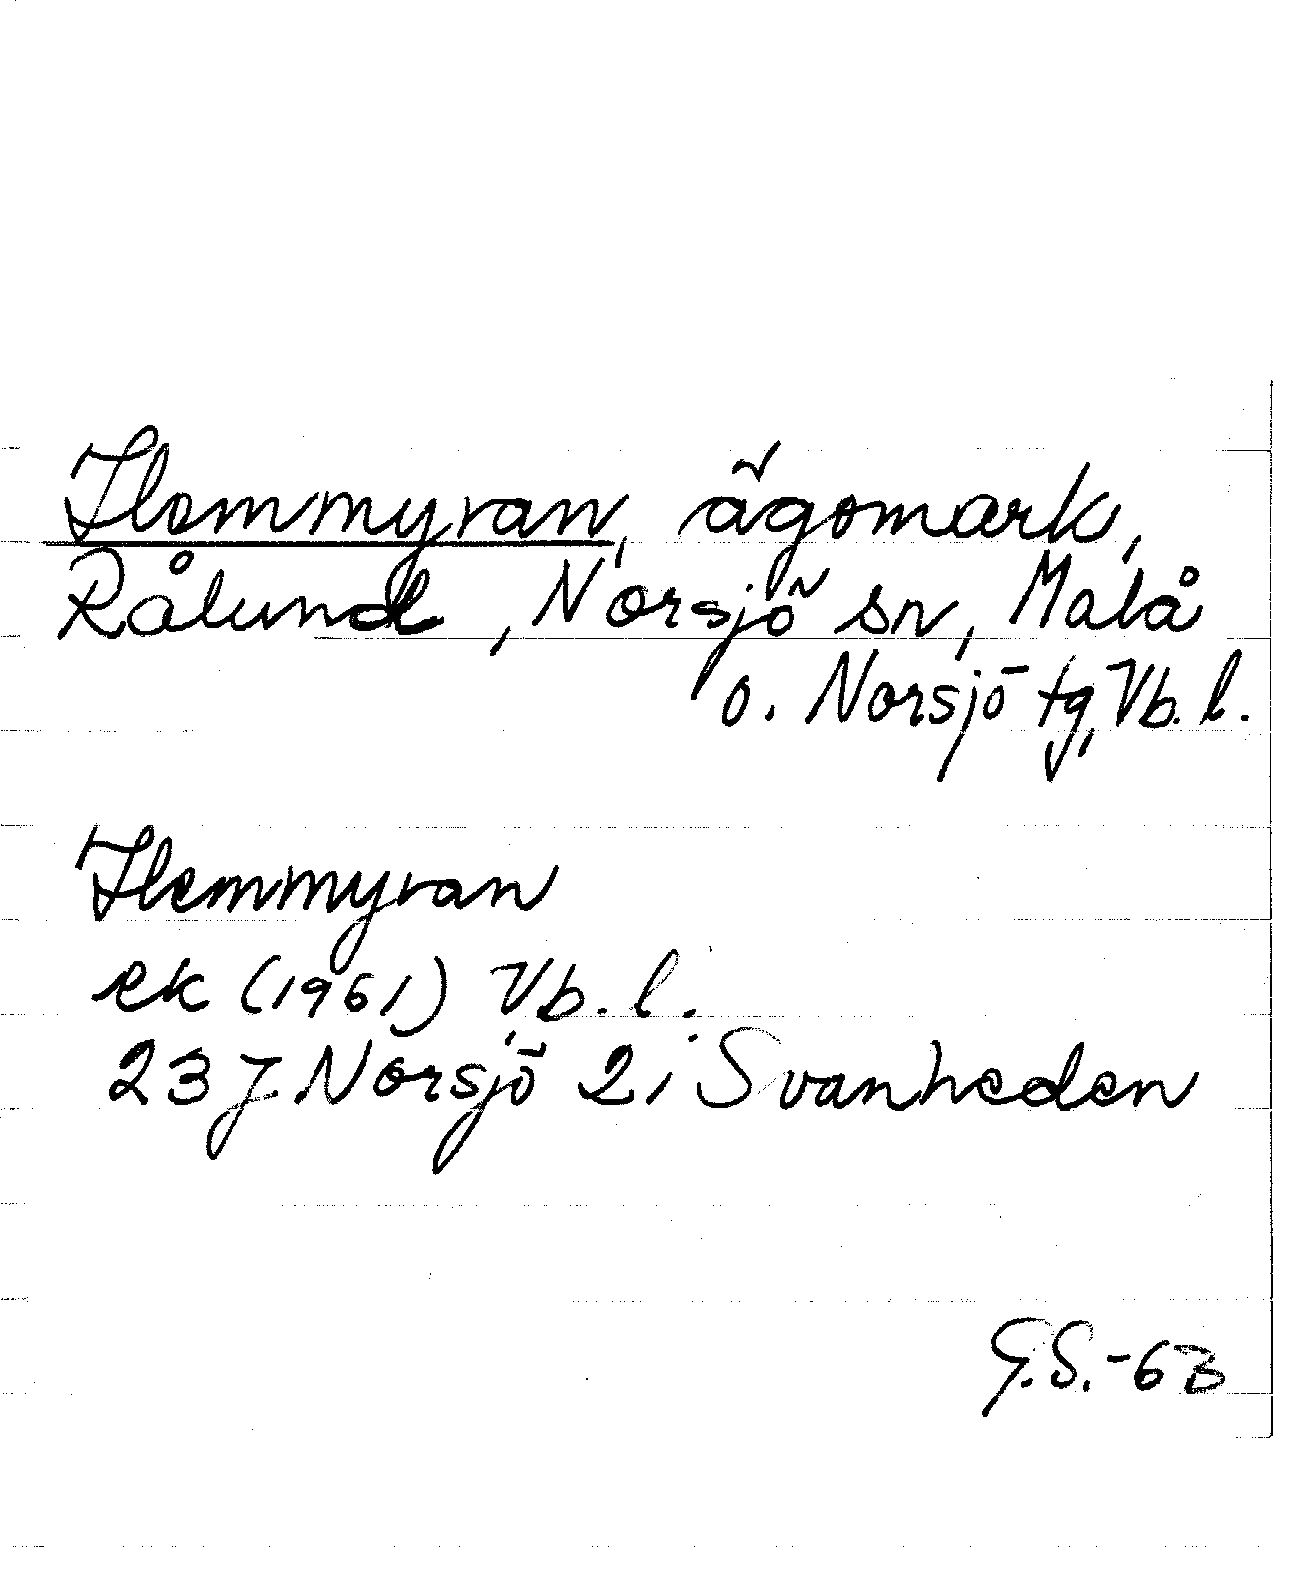 Hemmyran, ägomark,
Rålund, Norsjö sn, Malå
o. Norsjö tg, Vb. l.
Hemmyran
ek (1961) Vb. l.
23 J. Norsjö 2, Svanheden
G.S.-63